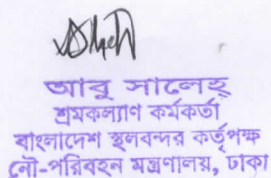 আবু সালেহ্
শ্রমকল্যাণ কর্মকর্তা
বাংলাদেশ স্থলবন্দর কর্তৃপক্ষ
নৌ-পরিবহন মন্ত্রণালয়, ঢাকা